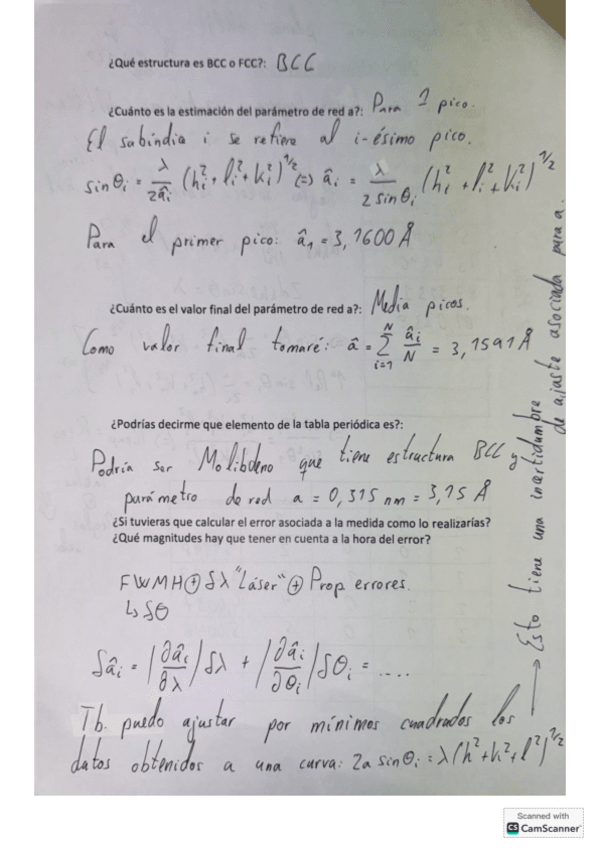 ¿Qué estructura es BCC o FCC?: BCC
¿Cuánto es la estimación del parámetro de red a?: Para 1 pico.
El subíndice i se refiere al i-ésimo pico.
sinθᵢ = λ/2âᵢ (hᵢ²+lᵢ²+kᵢ²)^1/2 (=) âᵢ = λ/2 sinθᵢ (hᵢ²+lᵢ²+kᵢ²)^1/2
Para el primer pico: â₁ = 3,1600 Å
¿Cuánto es el valor final del parámetro de red a?: Media picos.
Como valor final tomaré: â = Σ_{i=1}^{N} âᵢ/N = 3,1591 Å
¿Podrías decirme que elemento de la tabla periódica es?:
Podría ser Molibdeno que tiene estructura BCC y
parámetro de red a = 0,315 nm = 3,15 Å
¿Si tuvieras que calcular el error asociada a la medida como lo realizarías?
¿Qué magnitudes hay que tener en cuenta a la hora del error?
FWMH ⊕ δλ "Láser" ⊕ Prop errores.
↳ δθ
δâᵢ = |∂âᵢ/∂λ| δλ + |∂âᵢ/∂θᵢ| δθᵢ = ....
Tb. puedo ajustar por mínimos cuadrados los
datos obtenidos a una curva: 2a sinθᵢ = λ(h²+k²+l²)^1/2
→ Esto tiene una incertidumbre
de ajuste asociada para a.
Scanned with
CS CamScanner